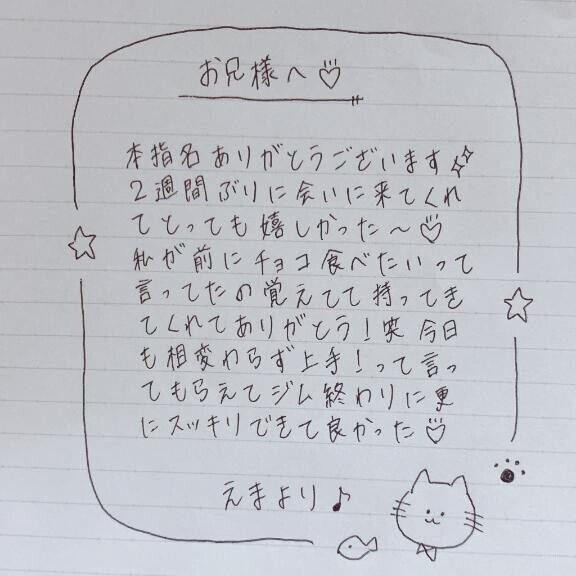 お兄様へ♡
本指名ありがとうございます✨
2週間ぶりに会いに来てくれ
てとっても嬉しかった～♡
私が前にチョコ食べたいって
言ってたの覚えてて持ってき
てくれてありがとう!笑 今日
も相変わらず上手!って言っ
てもらえてジム終わりに更
にスッキリできて良かった♡
えまより♪